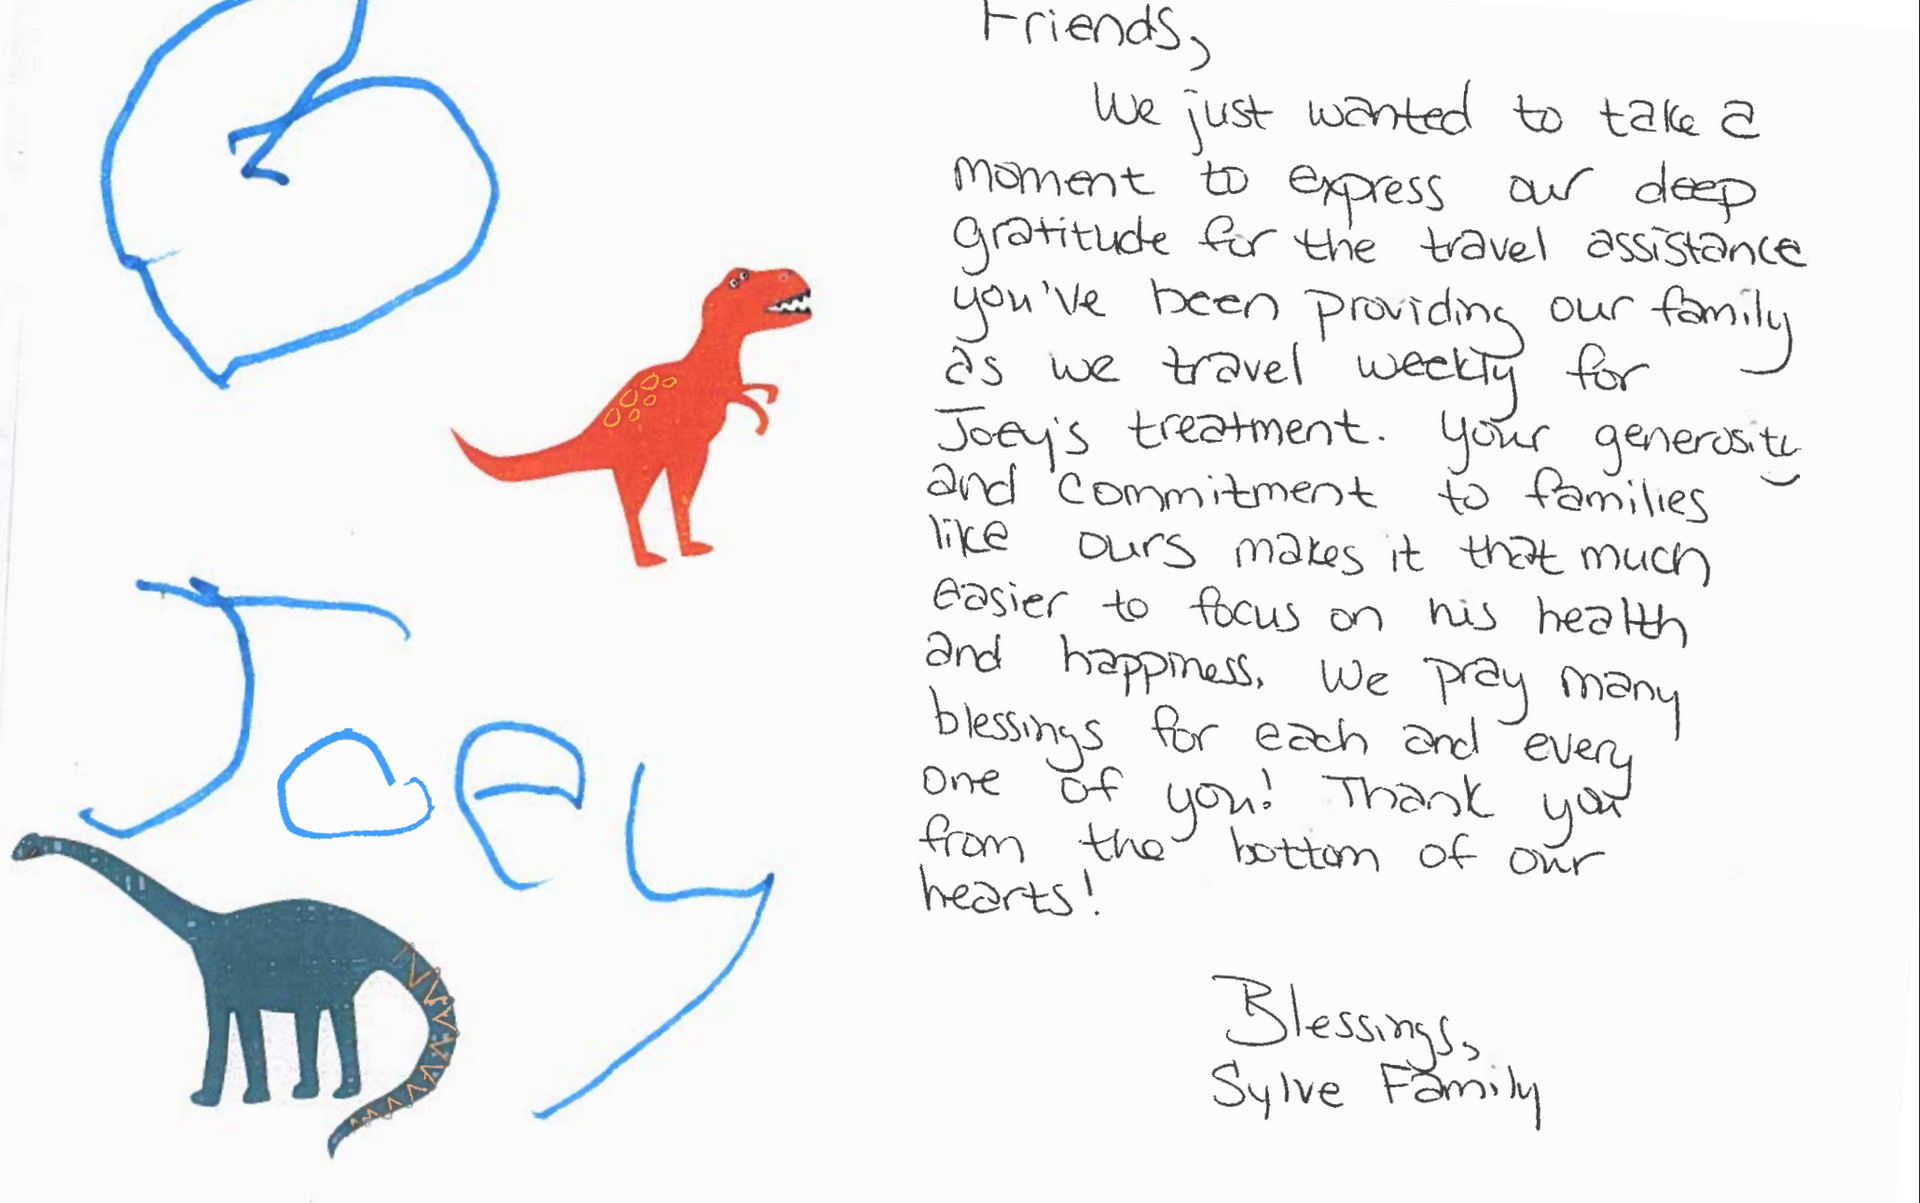 Joey
Friends,
We just wanted to take a
moment to express our deep
gratitude for the travel assistance
you've been providing our family
as we travel weekly for
Joey's treatment. Your generosity
and commitment to families
like ours makes it that much
easier to focus on his health
and happiness. We pray many
blessings for each and every
one of you! Thank you
from the bottom of our
hearts!
Blessings,
Sylve Family